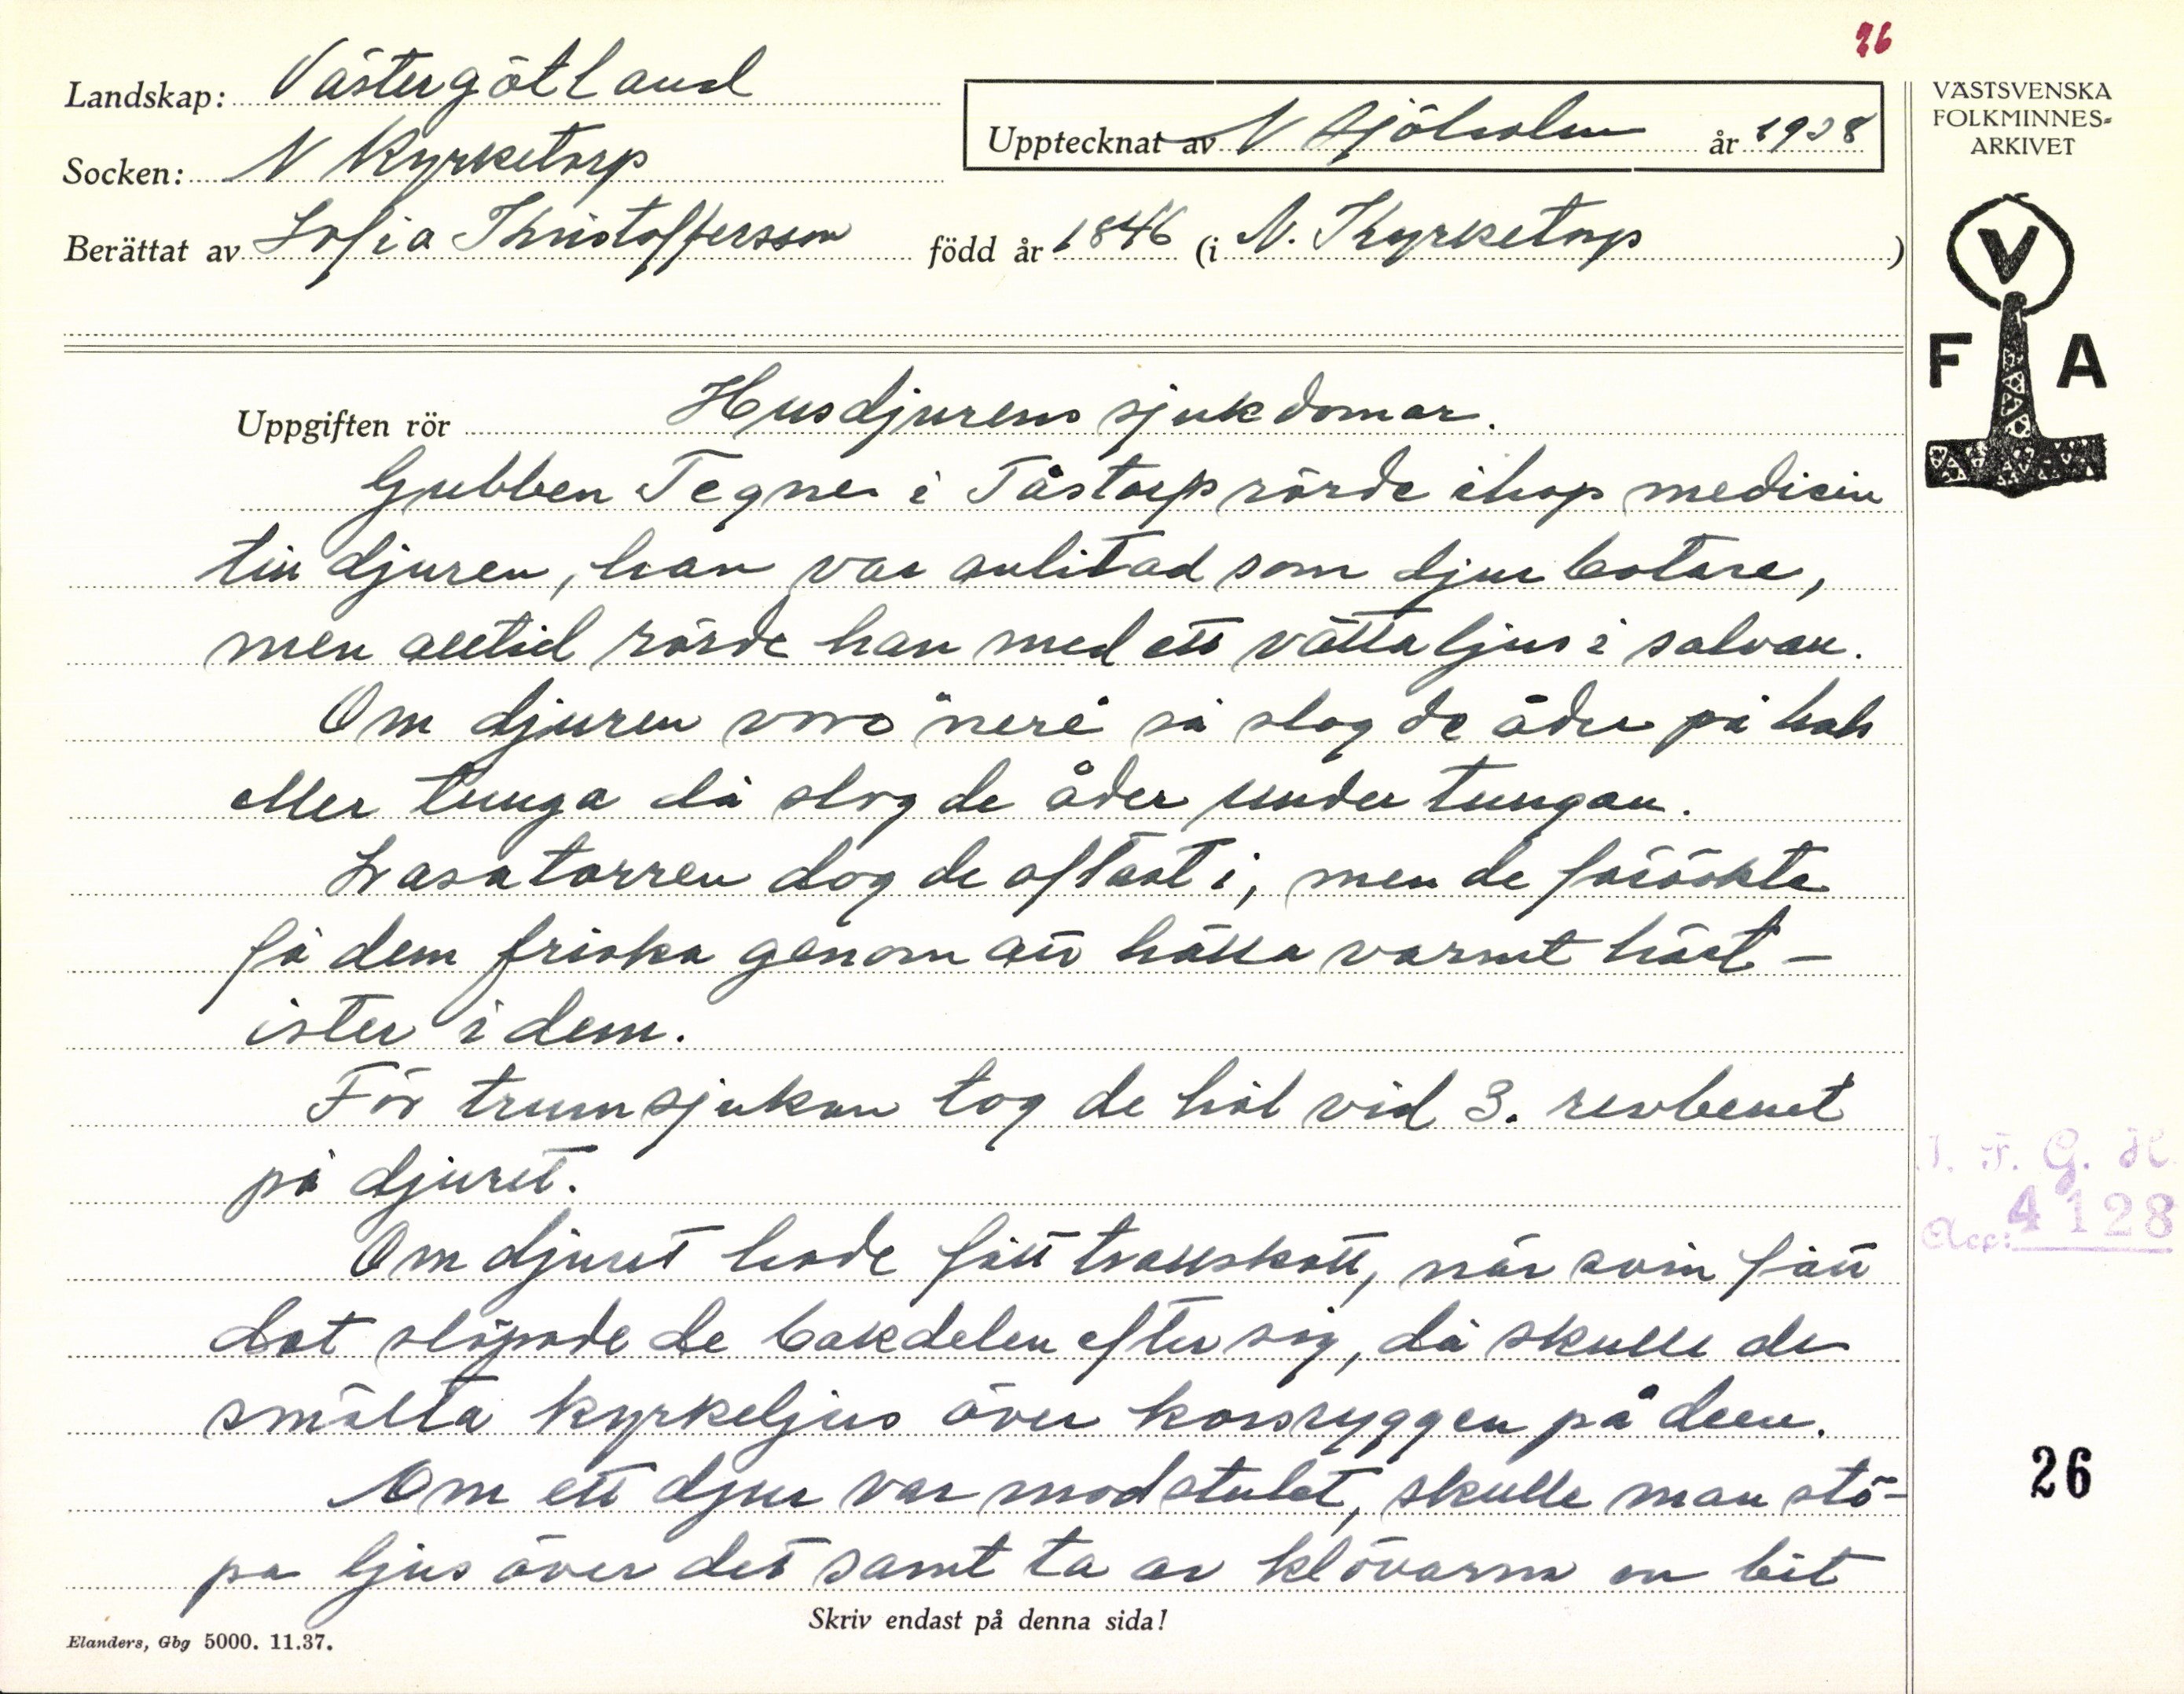 26
Landskap: Västergötland
Socken: N Kyrketorp
Upptecknat av N Sjöholm år 1938
Berättat av Sofia Kristoffersson född år 1846 (i N. Kyrketorp)
VÄSTSVENSKA
FOLKMINNES=
ARKIVET
V
F A
Uppgiften rör Husdjurens sjukdomar.
Gubben Tegner i Tåstorp rörde ihop medicin
till djuren, han var anlitad som djurbotare,
men alltid rörde han med ett vätta ljus i salvan.
Om djuren voro "nere" så slog de åder på hals
eller tunga då slog de åder under tungan.
Lasatorren dog de oftast i, men de försökte
få dem friska genom att hälla varmt häst-
ister i dem.
För trumsjukan tog de hål vid 3. revbenet
på djuret.
Om djuret hade fått trollskott, när svin fått
det släpade de bakdelen efter sig, då skulle de
smälta kyrkeljus över korsryggen på dem.
Om ett djur var modstulet, skulle man stö-
pa ljus över det samt ta av klövarna en bit
Skriv endast på denna sida!
Elanders, Gbg 5000. 11.37.
I. F. G. H.
Acc: 4128
26